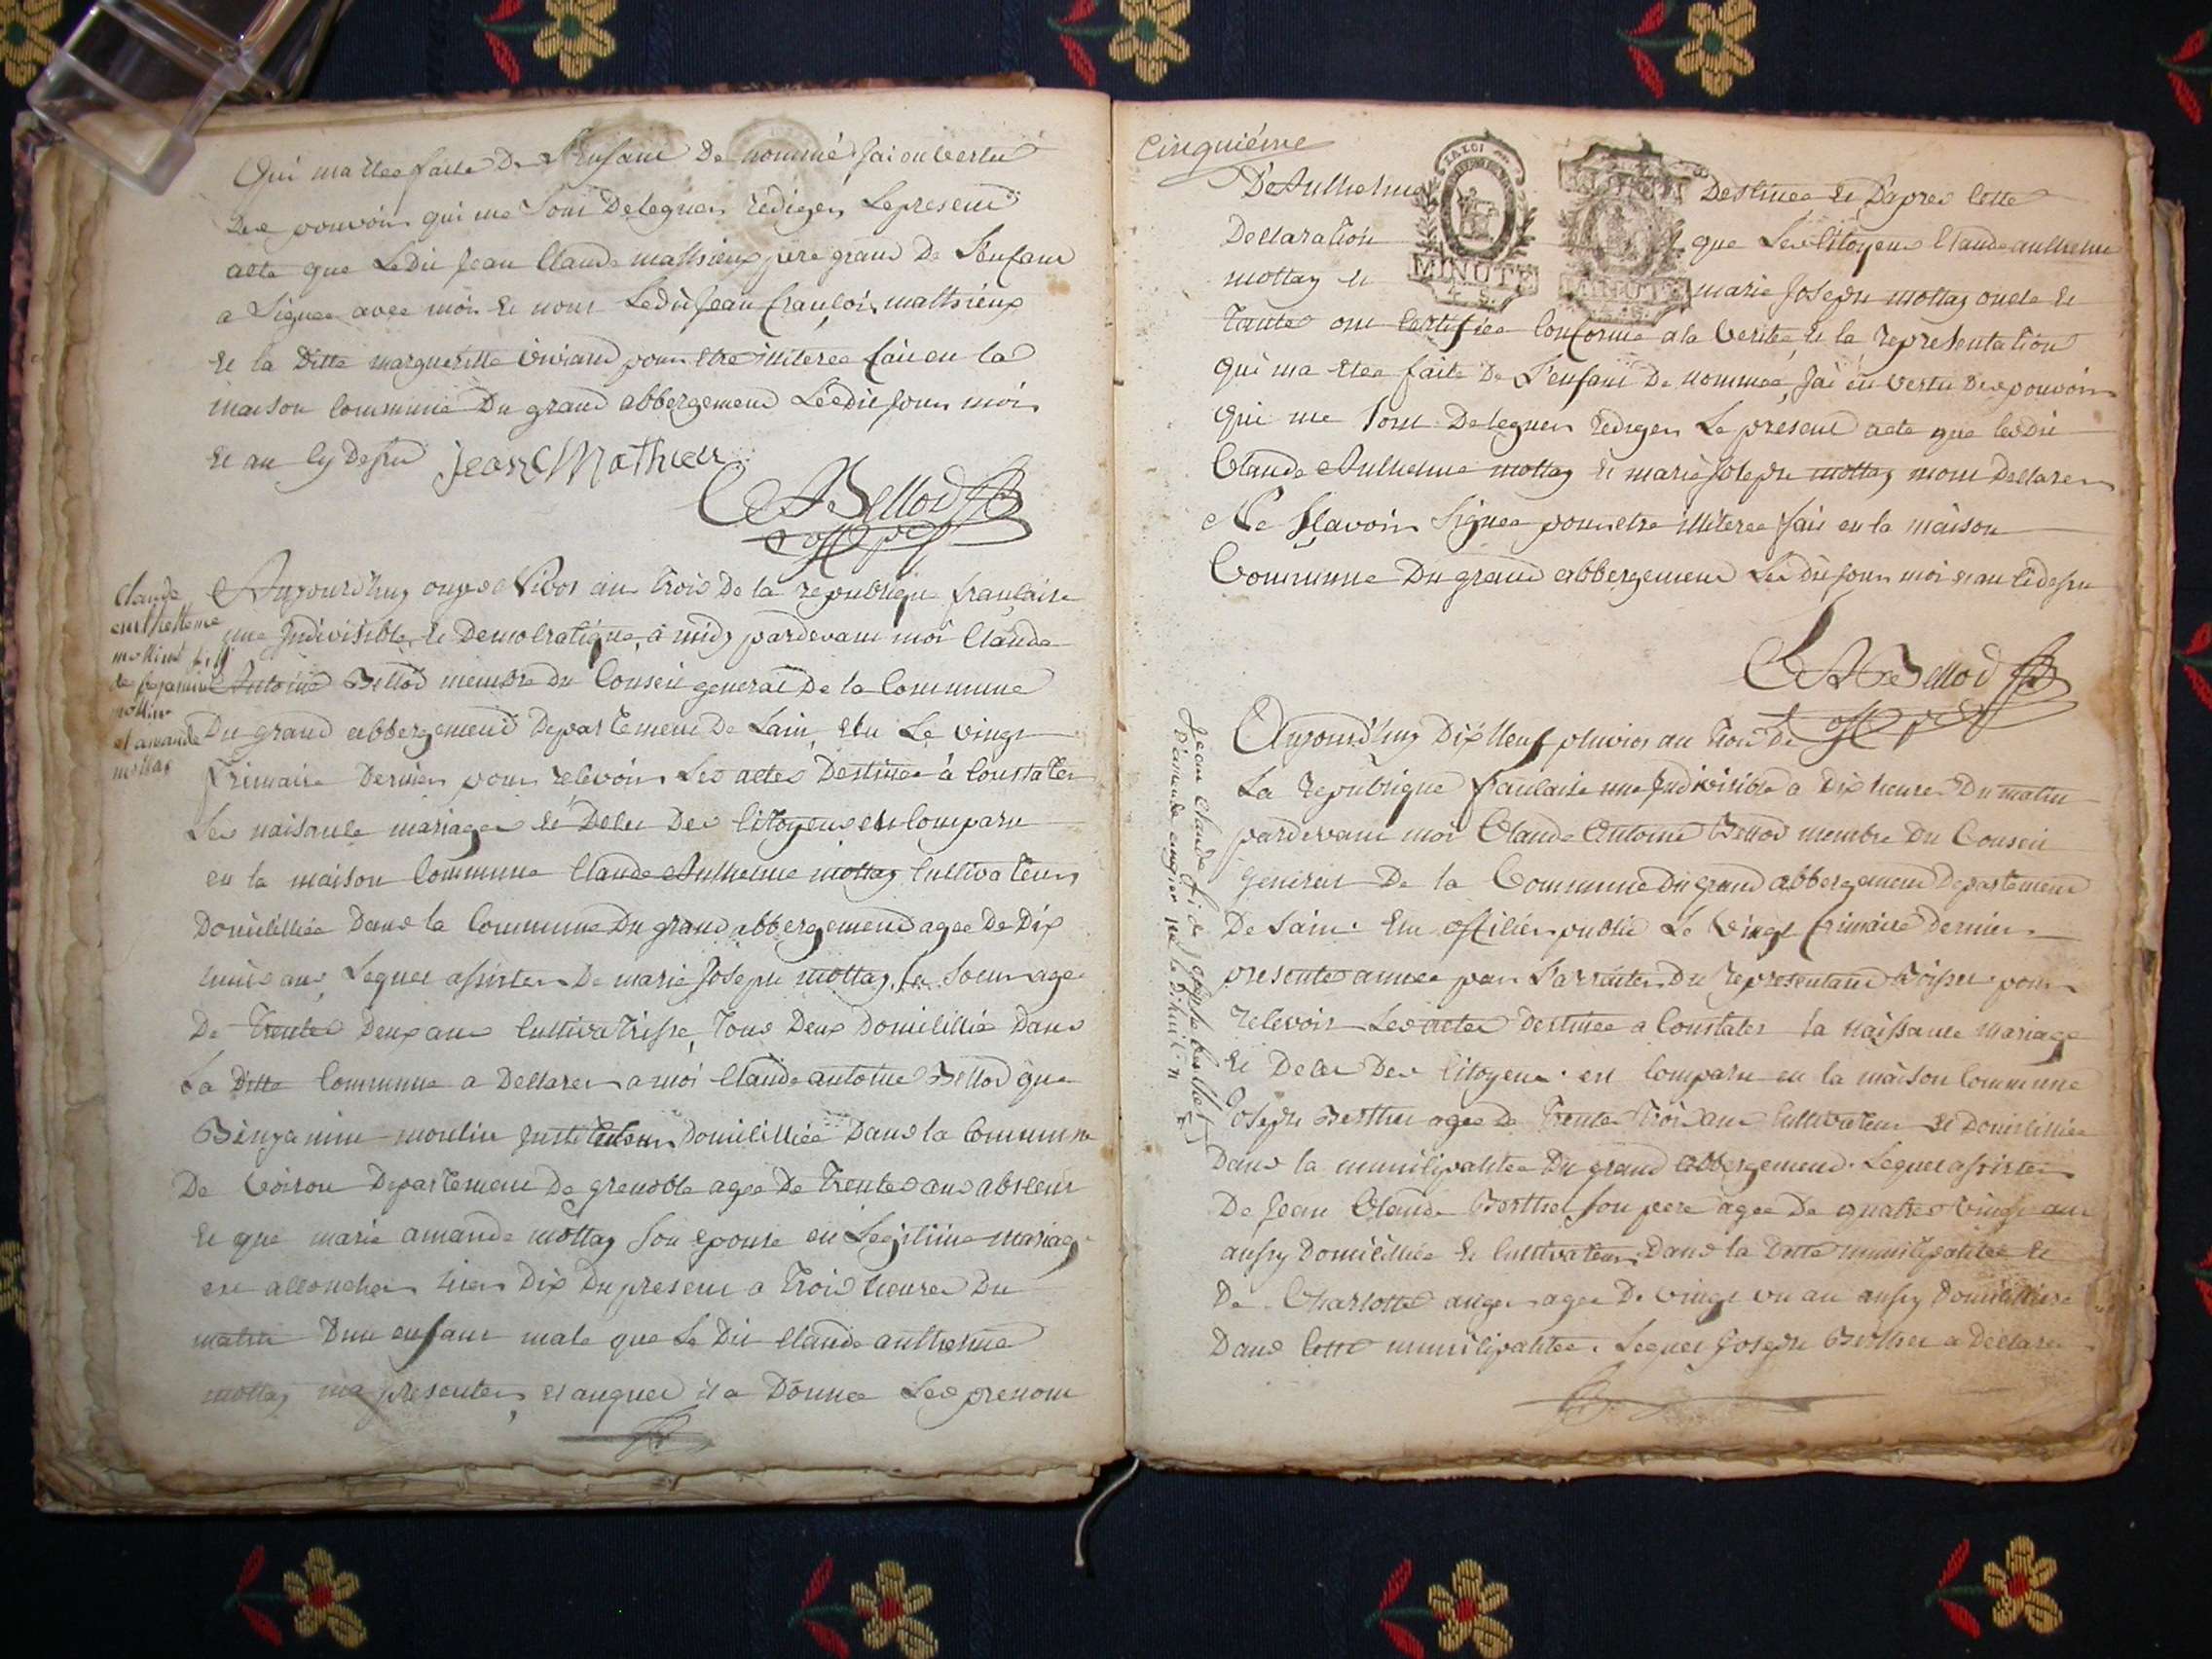 Qui ma etee faite De L'Enfant De nommé Jai en vertu
Des pouvoirs qui me sont Deleguer rédiger Le present
acte que Ledit Jean Claude matthieux pere grand De L'enfant
a Signee avec moi et nont Ledit Jean françois matthieux
et la Ditte margueritte viviand pour etre illiteree fait en la
maison commune Du grand abbergement Lesdit jour mois
et an cy Desu Jean C Mathieu
C A Bellod
off pc
Claude
anthelleme
mollin fils
de bejamin
mollin
et amande
mottay
Aujourd'huy onze Nivos an trois De la republique française
une Indivisible et Democratique, à midy pardevant moi Claude
Antoine Bellod membre du Conseil general De la Commune
Du grand abbergement Departement De Lain, elu Le vingt
frimaire dernier pour recevoir Les actes Destinee à constater
Les naisance mariages et Deces Des Citoyens est comparu
en la maison commune Claude Anthelme mottay cultivateur
Domicilliée Dans la Commune Du grand abbergement agee De Dix
huit ans Lequel assister De marie Joseph mottay sa soeur agee
De trente Deux ans cultivatrisse, tous Deux Domicillié Dans
La Ditte commune a Declarer a moi Claude antoine Bellod que
Binjamin moulin Instituteur Domicilliée Dans la Commune
De voiron Departement De grenoble agee De trente ans absent
et que marie amande mottay son epouse en Legitime mariage
est accoucher hier Dix Du present a trois heures Du
matin Dun enfant male que Le Dit Claude anthelme
mottay ma presenter, et auquel il a Donnee Les prenom
cinquiéme
LA LOI
MINUTE
MINUTE
D'Anthelme Destinee et D'apres cette
Declaration que Les Citoyens Claude anthelme
mottay et marie Joseph mottay oncle et
tante ont certifiee conforme a la veritee, et la representation
Qui ma etee faite De L'enfant De nommee, Jai en vertu Des pouvoirs
Qui me sont Deleguer rediger Le present acte que lesdit
Claude Anthelme mottay et marie Joseph mottay mont Declarer
Ne Sçavoir Signee pour etre illiteree fait en la maison
Commune Du grand abbergement Les dit jour moi et an cidesu
C A Bellod
off pc
Jean Claude fils de joseph berthet
Aujourd'huy Dix Neuf pluvios an trois De
La republique francaise une Indivisible a Dix heures Du matin
pardevant moi Claude Antoine Bellod membre Du Conseil
general De la Commune Du grand abbergement Departement
De Lain. elu officier public Le vingt frimaire Dernier
presente annee par L'arraiter Du representant Boisset pour
recevoir Les actes Destinee a constater la naissance mariage
et Deces Des Citoyens. est comparu en la maison commune
Joseph Berthet agee De trente trois ans cultivateur et Domicilliée
Dans la municipalitee Du grand abbergement. Lequel assister
De Jean Claude Berthet son pere agee De quatre vingt ans
aussy Domicilliée et cultivateur Dans la Ditte municipalitee et
De Charlotte auger agee De vingt un an aussy Domicilliere
Dans Cette municipalitee. Lequel Joseph Berthet a Declarer